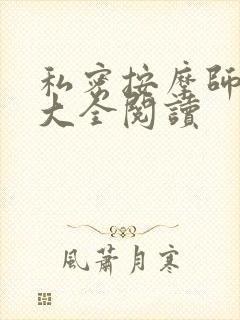 私密按摩師
大全閱讀
風蕭月寒